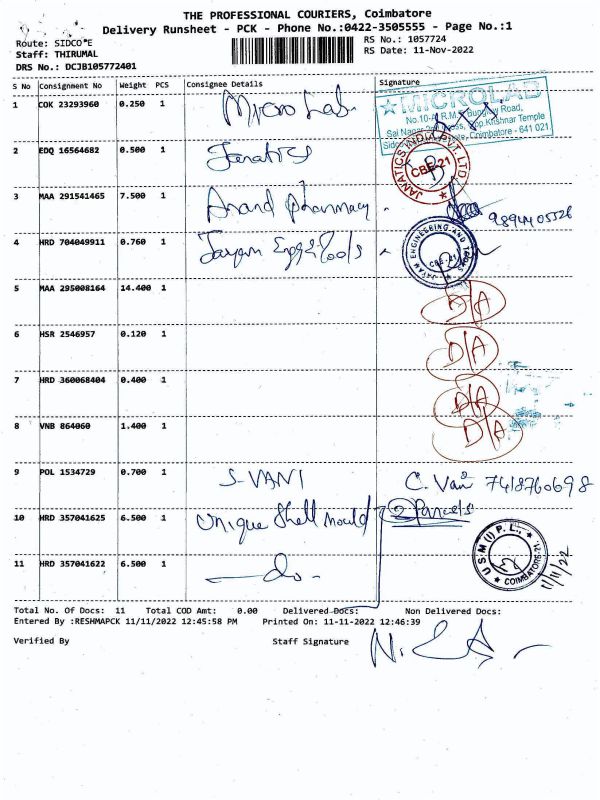 THE PROFESSIONAL COURIERS, Coimbatore
Delivery Runsheet - PCK - Phone No.:0422-3505555 - Page No.:1
Route: SIDCO E
Staff: THIRUMAL
DRS No.: DCJB105772401
RS No.: 1057724
RS Date: 11-Nov-2022
S No Consignment No Weight PCS Consignee Details Signature
1 COK 23293960 0.250 1 Micro Lab
★MICROLAB
No.10-A, R.M.
Road,
Sai Nagar
Temple
Coimbatore - 641 021
2 EDQ 16564682 0.500 1 Janatics
JANATICS INDIA PVT. LTD ★
CBE-21
3 MAA 291541465 7.500 1 Anand Pharmacy
4 HRD 704049911 0.760 1 Jayam Engg & Tools
JAYAM ENGINEERING AND TOOLS
CBE-21
5 MAA 295008164 14.400 1 D/A
6 HSR 2546957 0.120 1 D/A
7 HRD 360068404 0.400 1 D/A
8 VNB 864060 1.400 1 D/A
9 POL 1534729 0.700 1 S-VANI C. Vani 7418760698
10 HRD 357041625 6.500 1 Unique Shell mould 2 Parcels
11 HRD 357041622 6.500 1 -do-
U S M (I) P. L., ★ COIMBATORE-21. ★
11/11/22
Total No. Of Docs: 11 Total COD Amt: 0.00 Delivered Docs: Non Delivered Docs:
Entered By :RESHMAPCK 11/11/2022 12:45:58 PM Printed On: 11-11-2022 12:46:39
Verified By Staff Signature